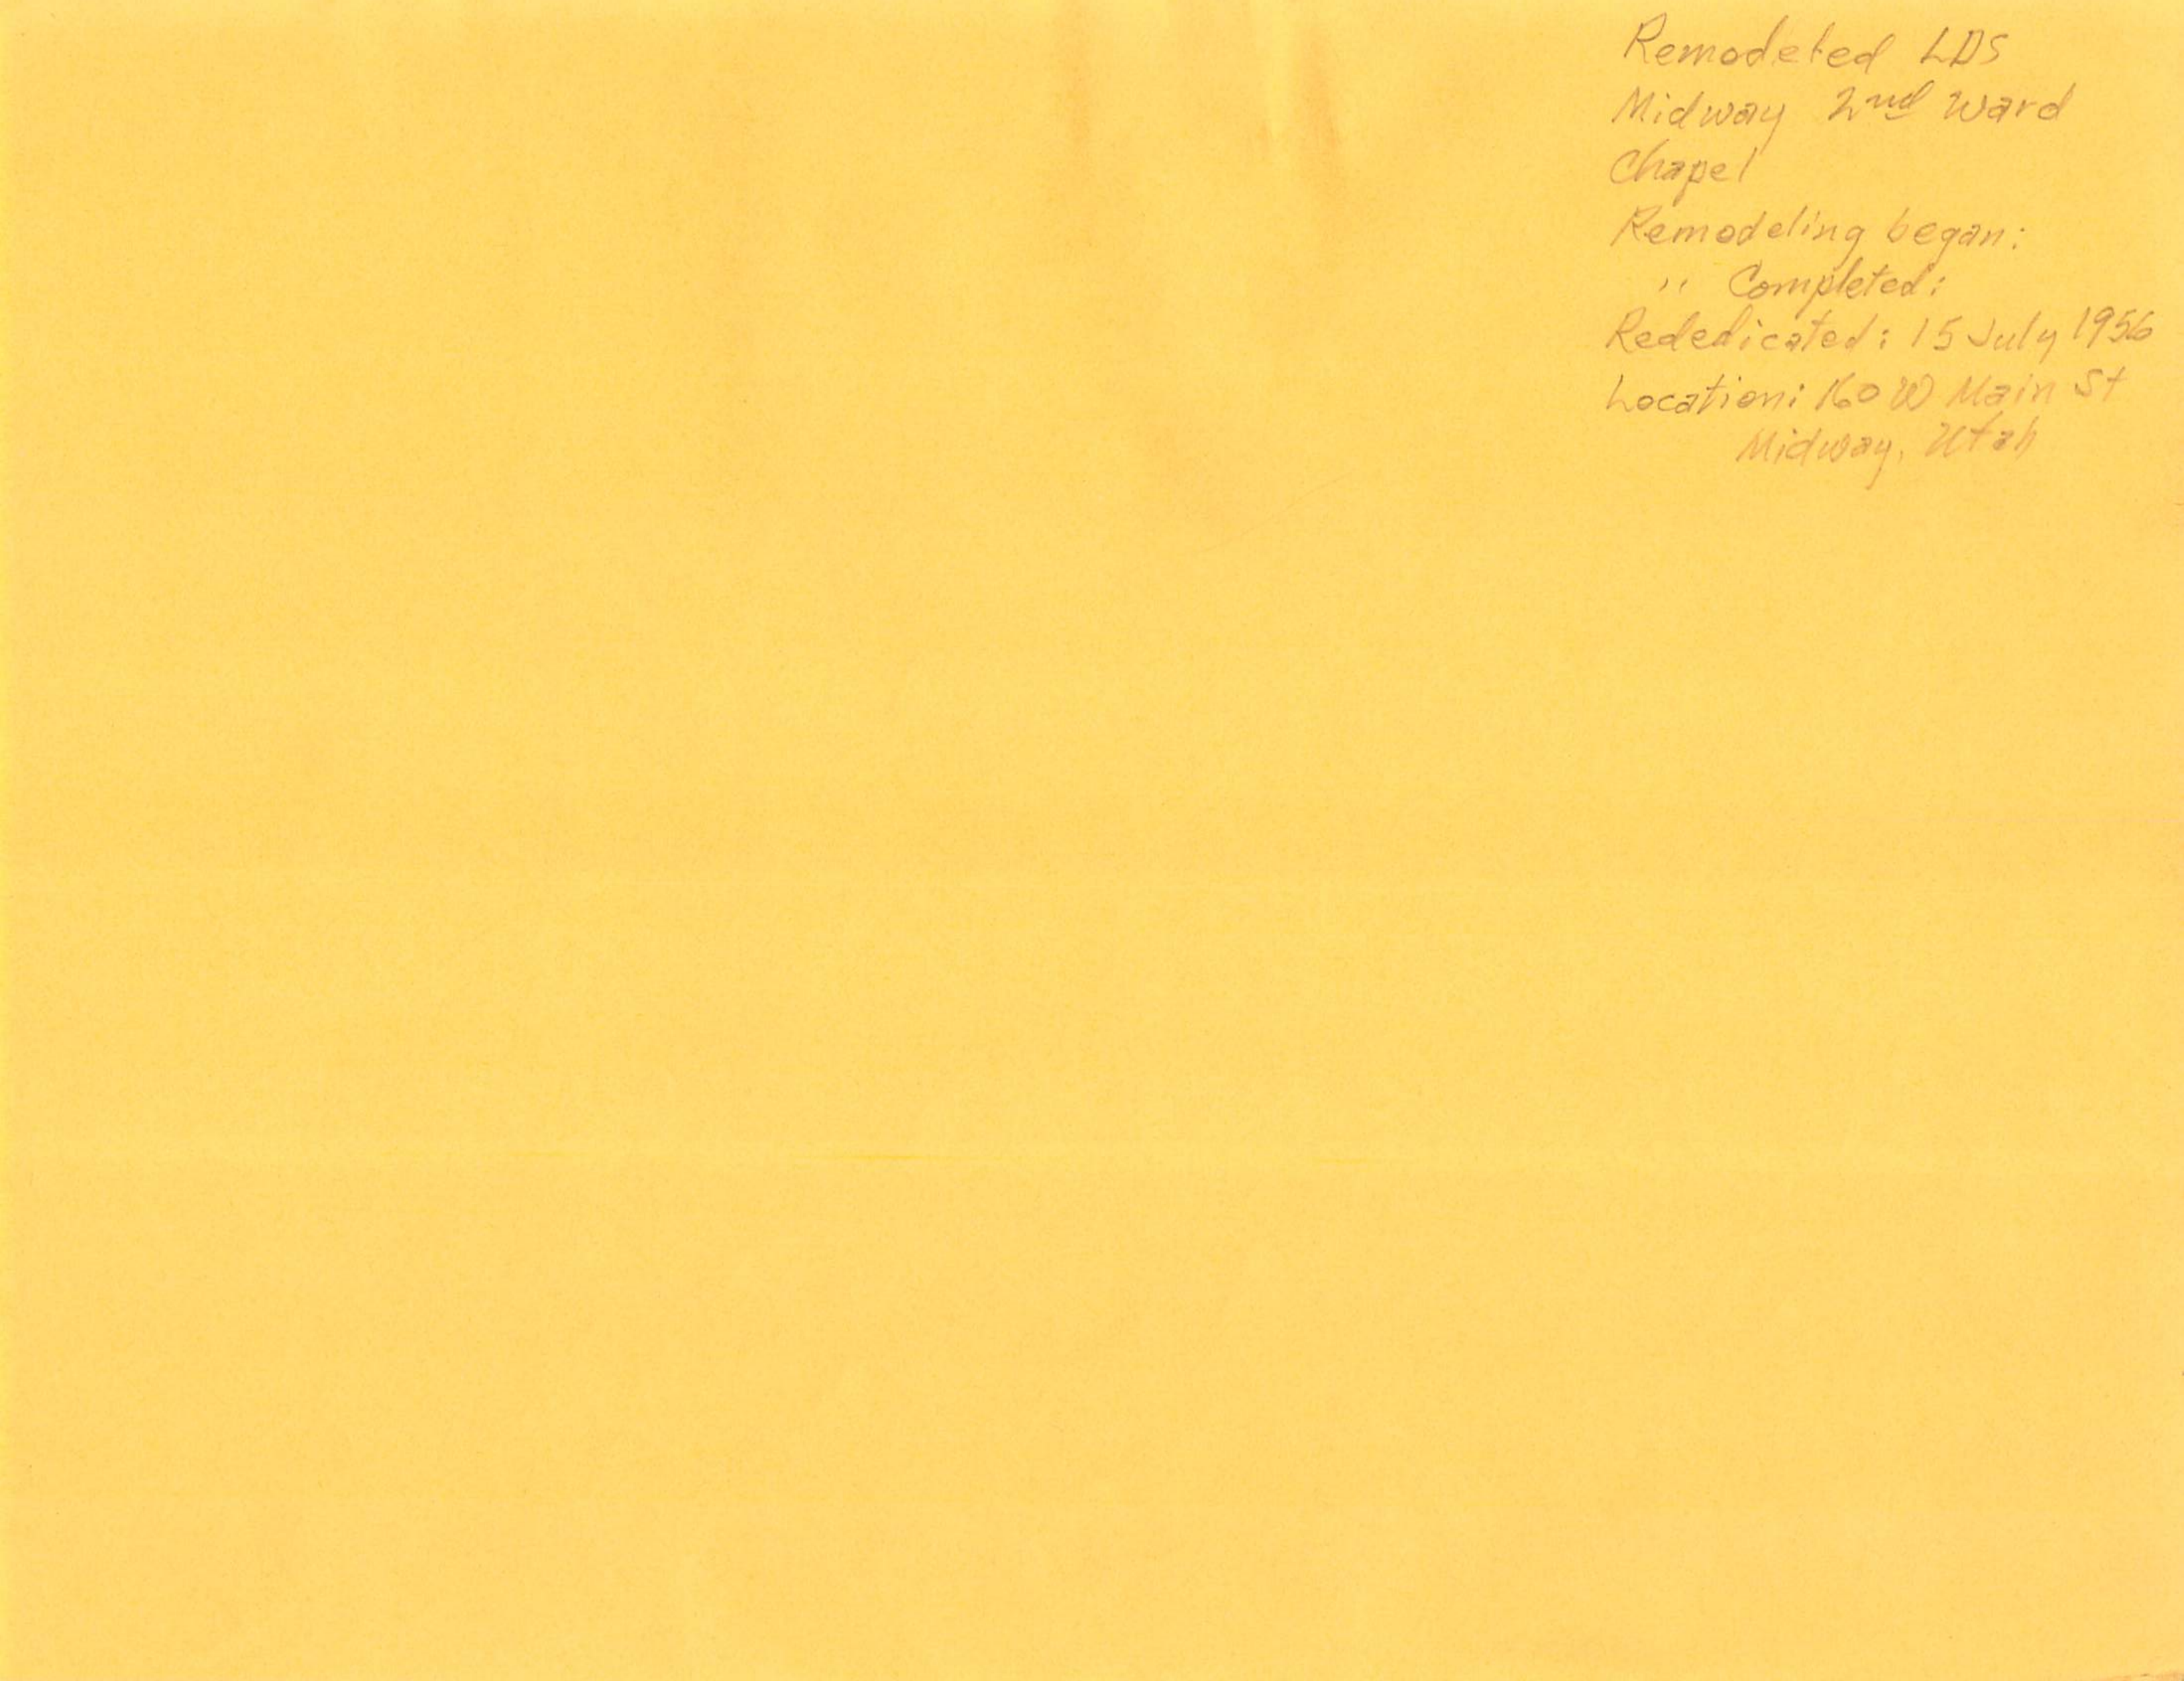 Remodeled LDS
Midway 2nd Ward
Chapel
Remodeling began:
" Completed:
Rededicated: 15 July 1956
Location: 160 W Main St
Midway, Utah